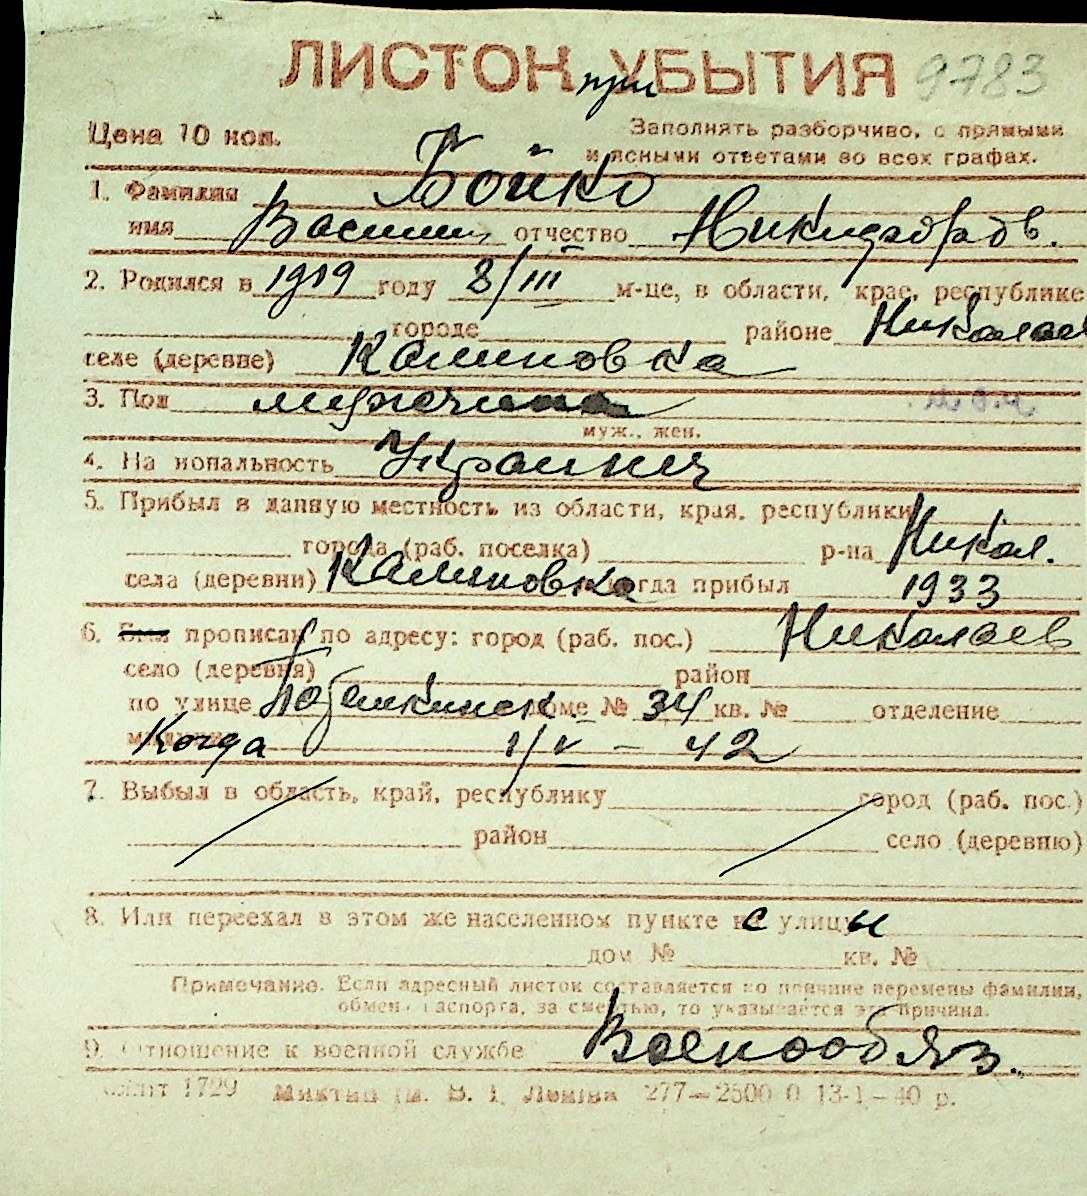 ЛИСТОК при УБЫТИЯ 9783
Цена 10 коп.
Заполнять разборчиво, с прямыми
и ясными ответами во всех графах.
1. Фамилия Бойко
имя Василий отчество Никифоров.
2. Родился в 1919 году 8/III м-це, в области, крае, республике
городе районе Николаев
селе (деревне) Калиновка
3. Пол мужчина
муж., жен.
4. На иональность Украинец
5. Прибыл в данную местность из области, края, республики
города (раб. поселка) р-на Никол.
села (деревни) Калиновка когда прибыл 1933
6. Был прописан по адресу: город (раб. пос.) Николаев
село (деревня) район
по улице Потемкинск. доме № 34 кв. № отделение
Когда 1/V - 42
7. Выбыл в область, край, республику город (раб. пос.)
район село (деревню)
8. Или переехал в этом же населенном пункте с улицы
дом № кв. №
Примечание. Если адресный листок составляется по причине перемены фамилии,
обмена паспорта, за смертью, то указывается эта причина.
9. Отношение к военной службе Военнообяз.
1729 им. В. І. Леніна 277—2500 0 13-1-40 р.